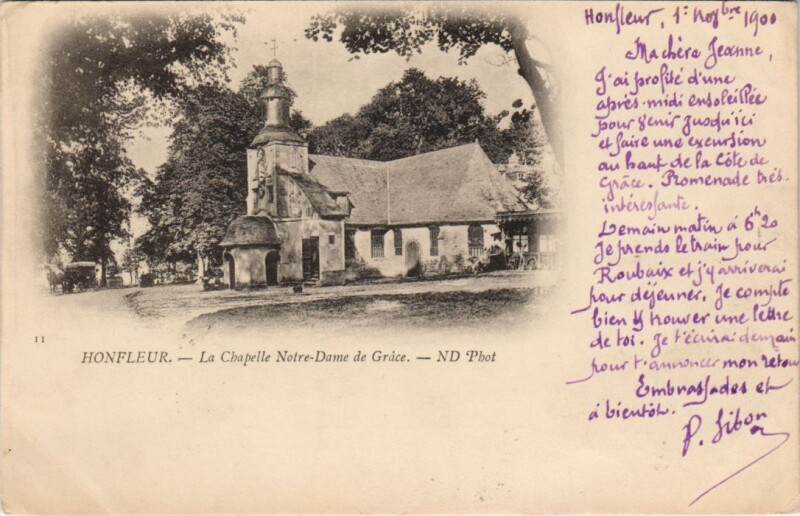 Honfleur, 1er Novbre 1900
Ma chère Jeanne,
J'ai profité d'une
après-midi ensoleillée
pour venir jusqu'ici
et faire une excursion
au haut de la Côte de
Grâce. Promenade très-
intéressante.
Demain matin à 6h20
je prends le train pour
Roubaix et j'y arriverai
pour déjeuner. Je compte
bien y trouver une lettre
de toi. Je t'écrirai demain
pour t'annoncer mon retour
Embrassades et
à bientôt.
11
HONFLEUR. — La Chapelle Notre-Dame de Grâce. — ND Phot